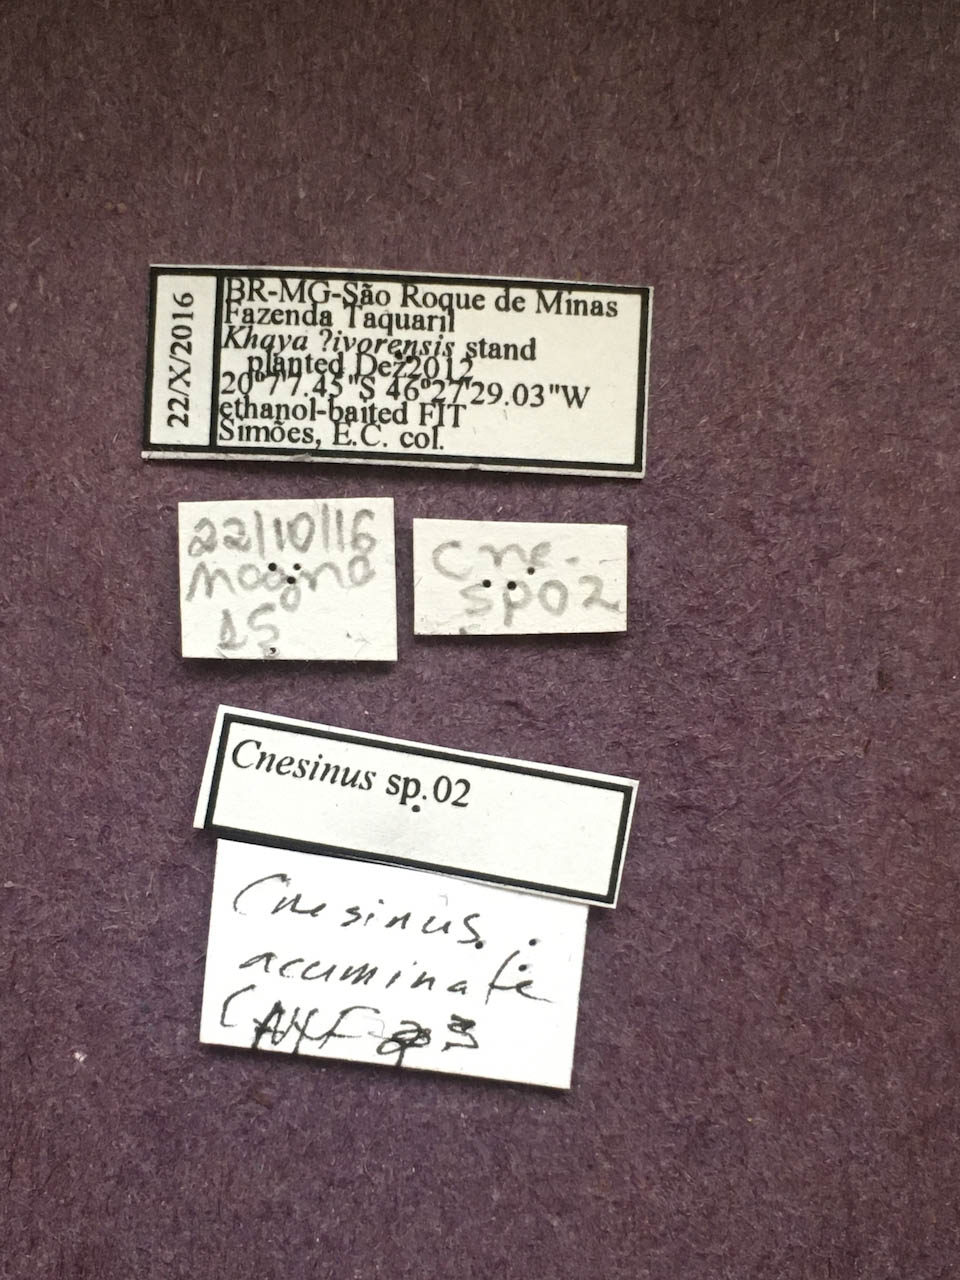 22/X/2016
BR-MG-São Roque de Minas
Fazenda Taquaril
Khaya ?ivorensis stand
planted Dez2012
20°7'7.45"S 46°27'29.03"W
ethanol-baited FIT
Simões, E.C. col.
22/10/16
mogno
15
Cne.
sp02
Cnesinus sp.02
Cnesinus
acuminate